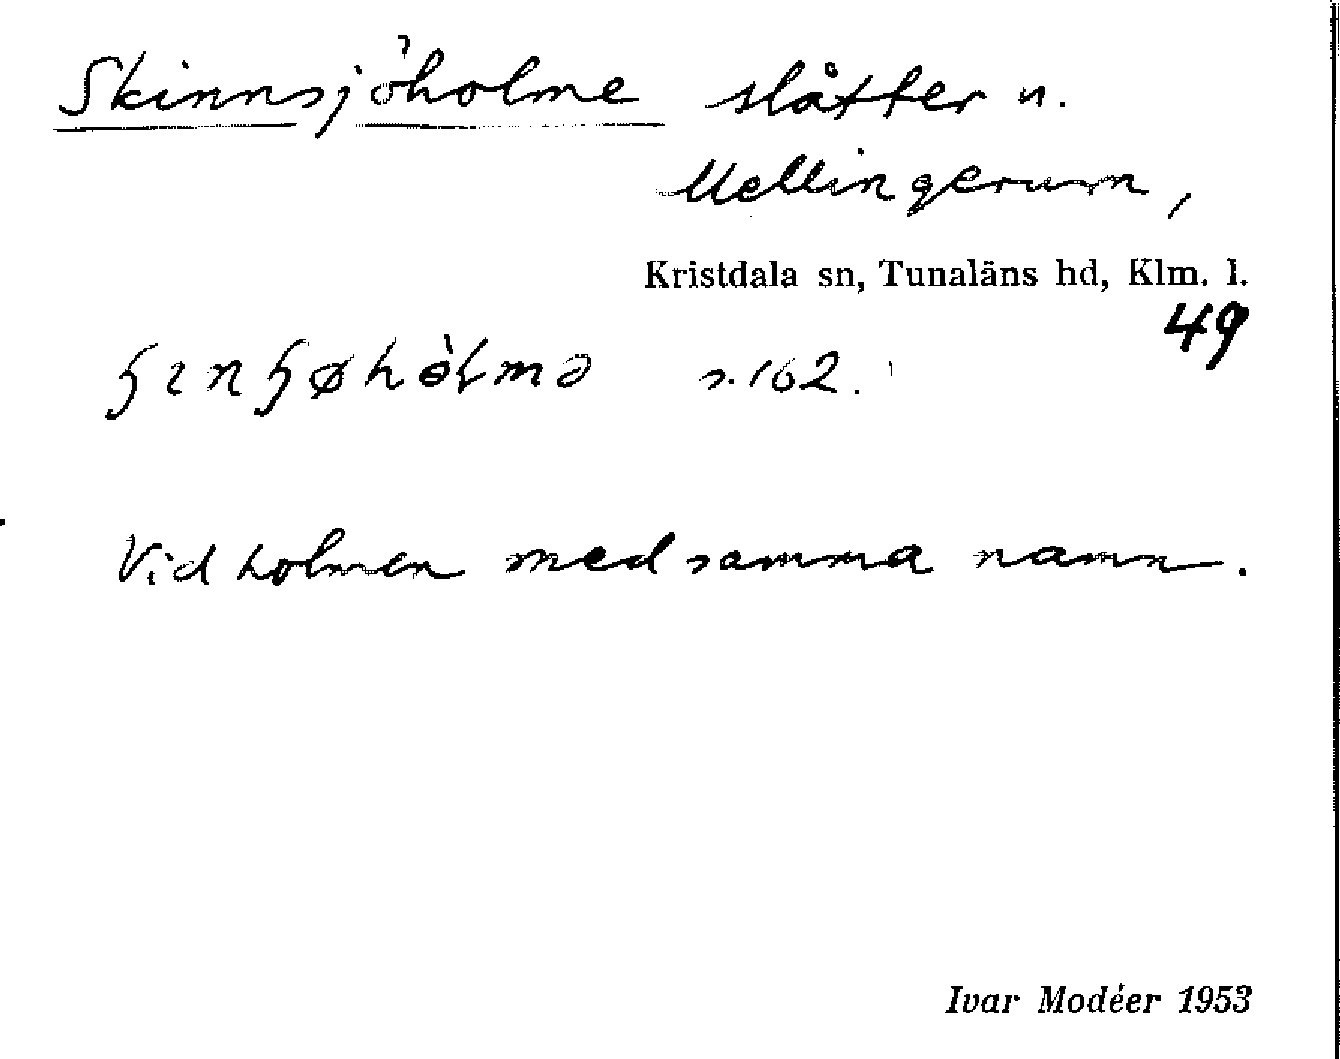 Skinnsjöholme slåtter n.
Mellingerum,
Kristdala sn, Tunaläns hd, Klm. l.
49
ɧɪnɧøhòlmə s. 162.
Vid holmen med samma namn.
Ivar Modéer 1953